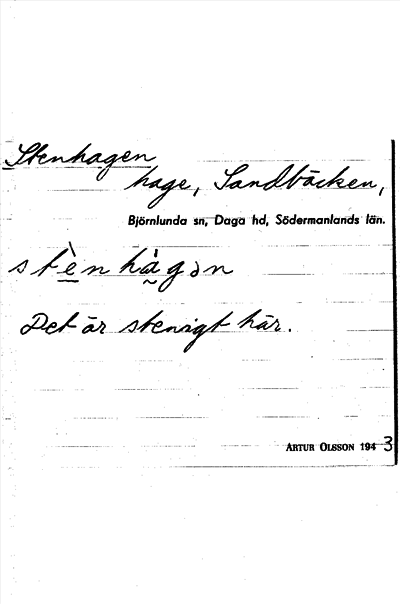 Stenhagen
hage, Sandbäcken,
Björnlunda sn, Daga hd, Södermanlands län.
stè̱nhȧ̰gən
Det är stenigt här.
ARTUR OLSSON 1943